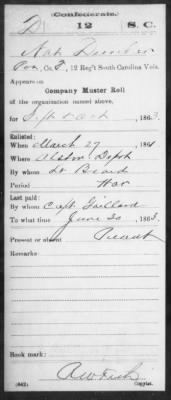 Confederate.
D 12 S. C.
Nat
Pvt., Co. F, 12 Reg't South Carolina Vols.
Appears on
Company Muster Roll
of the organization named above,
for Sept & Oct, 1863.
Enlisted:
When March 27, 1861
Where Alston Depot
By whom Lt Beard
Period War
Last paid:
By whom Capt Gaillard
To what time June 30, 1863.
Present or absent Present
Remarks:
Book mark:
(642) Copyist.